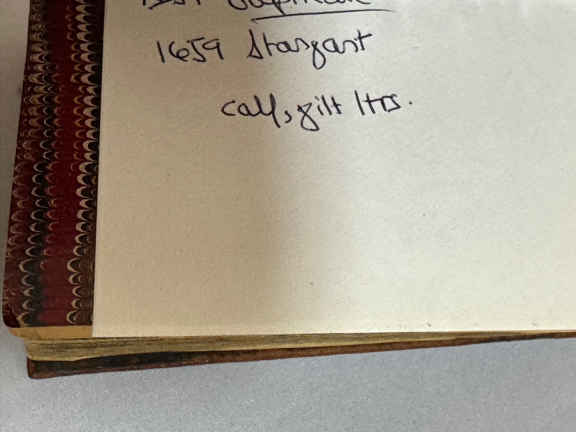 1659 Stargant
calf, gilt ltrs.